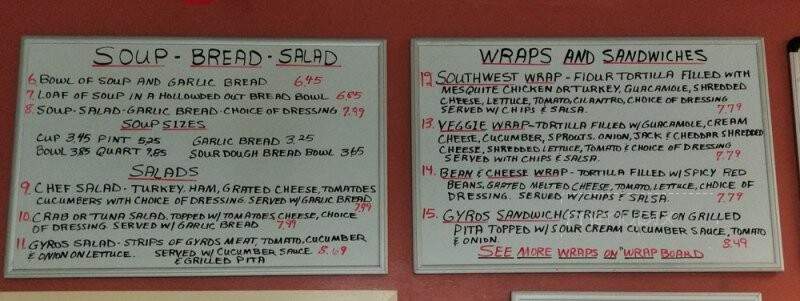 SOUP - BREAD - SALAD
6. BOWL OF SOUP AND GARLIC BREAD 6.45
7. LOAF OF SOUP IN A HOLLOWDED OUT BREAD BOWL 6.85
8. SOUP-SALAD-GARLIC BREAD-CHOICE OF DRESSING 7.99
SOUP SIZES
CUP 3.45 PINT 5.25 GARLIC BREAD 3.25
BOWL 3.85 QUART 9.85 SOUR DOUGH BREAD BOWL 3.65
SALADS
9. CHEF SALAD - TURKEY, HAM, GRATED CHEESE, TOMATOES
CUCUMBERS WITH CHOICE OF DRESSING. SERVED W/ GARLIC BREAD
7.99
10. CRAB OR TUNA SALAD, TOPPED W/ TOMATOES CHEESE, CHOICE
OF DRESSING. SERVED W/ GARLIC BREAD 7.99
11. GYROS SALAD - STRIPS OF GYROS MEAT, TOMATO, CUCUMBER
& ONION ON LETTUCE. SERVED W/ CUCUMBER SAUCE 8.69
& GRILLED PITA
WRAPS AND SANDWICHES
12. SOUTHWEST WRAP - FLOUR TORTILLA FILLED WITH
MESQUITE CHICKEN OR TURKEY, GUACAMOLE, SHREDDED
CHEESE, LETTUCE, TOMATO, CILANTRO, CHOICE OF DRESSING
SERVED W/ CHIPS & SALSA. 7.79
13. VEGGIE WRAP - TORTILLA FILLED W/ GUACAMOLE, CREAM
CHEESE, CUCUMBER, SPROUTS, ONION, JACK & CHEDDAR SHREDDED
CHEESE, SHREDDED LETTUCE, TOMATO & CHOICE OF DRESSING
SERVED WITH CHIPS & SALSA. 7.79
14. BEAN & CHEESE WRAP - TORTILLA FILLED W/ SPICY RED
BEANS, GRATED MELTED CHEESE, TOMATO, LETTUCE, CHOICE OF
DRESSING. SERVED W/ CHIPS & SALSA. 7.79
15. GYROS SANDWICH (STRIPS OF BEEF ON GRILLED
PITA TOPPED W/ SOUR CREAM CUCUMBER SAUCE, TOMATO
& ONION. 8.49
SEE MORE WRAPS ON "WRAP BOARD